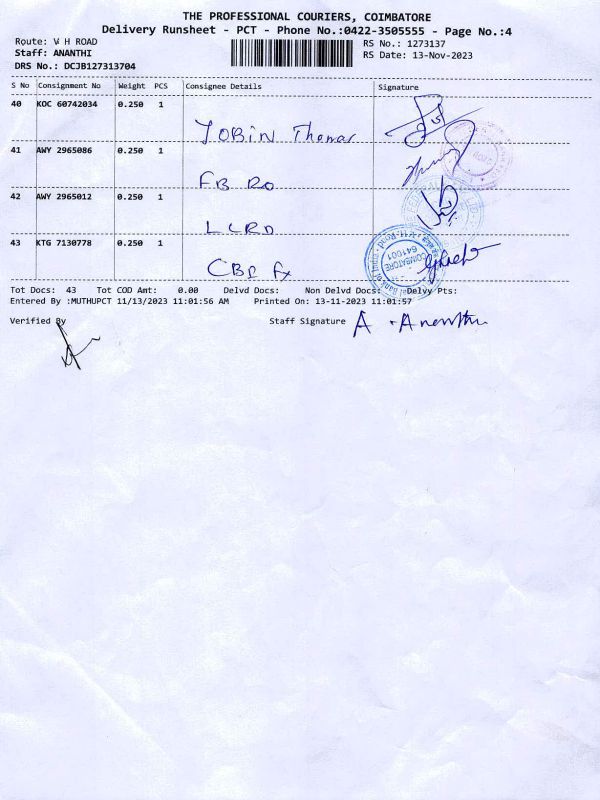 THE PROFESSIONAL COURIERS, COIMBATORE
Delivery Runsheet - PCT - Phone No.:0422-3505555 - Page No.:4
Route: V H ROAD
RS No.: 1273137
Staff: ANANTHI
RS Date: 13-Nov-2023
DRS No.: DCJB127313704
S No Consignment No Weight PCS Consignee Details Signature
40 KOC 60742034 0.250 1
JOBIN Thomas
41 AWY 2965086 0.250 1
FB RO
42 AWY 2965012 0.250 1
LCRD
43 KTG 7130778 0.250 1
CBE Fx
COIMBATORE
641001
Tot Docs: 43 Tot COD Amt: 0.00 Delvd Docs: Non Delvd Docs: Delvy Pts:
Entered By :MUTHUPCT 11/13/2023 11:01:56 AM Printed On: 13-11-2023 11:01:57
Verified By Staff Signature A. Ananthi